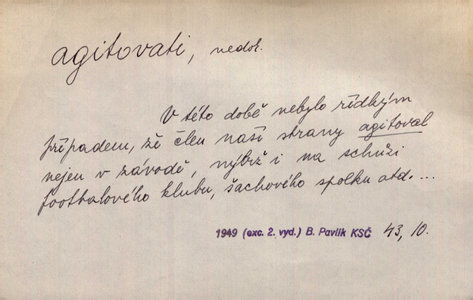 agitovati, nedok.
V této době nebylo řídkým
případem, že člen naší strany agitoval
nejen v závodě, nýbrž i na schůzi
footbalového klubu, šachového spolku atd. ...
1949 (exc. 2. vyd.) B. Pavlík KSČ 43, 10.